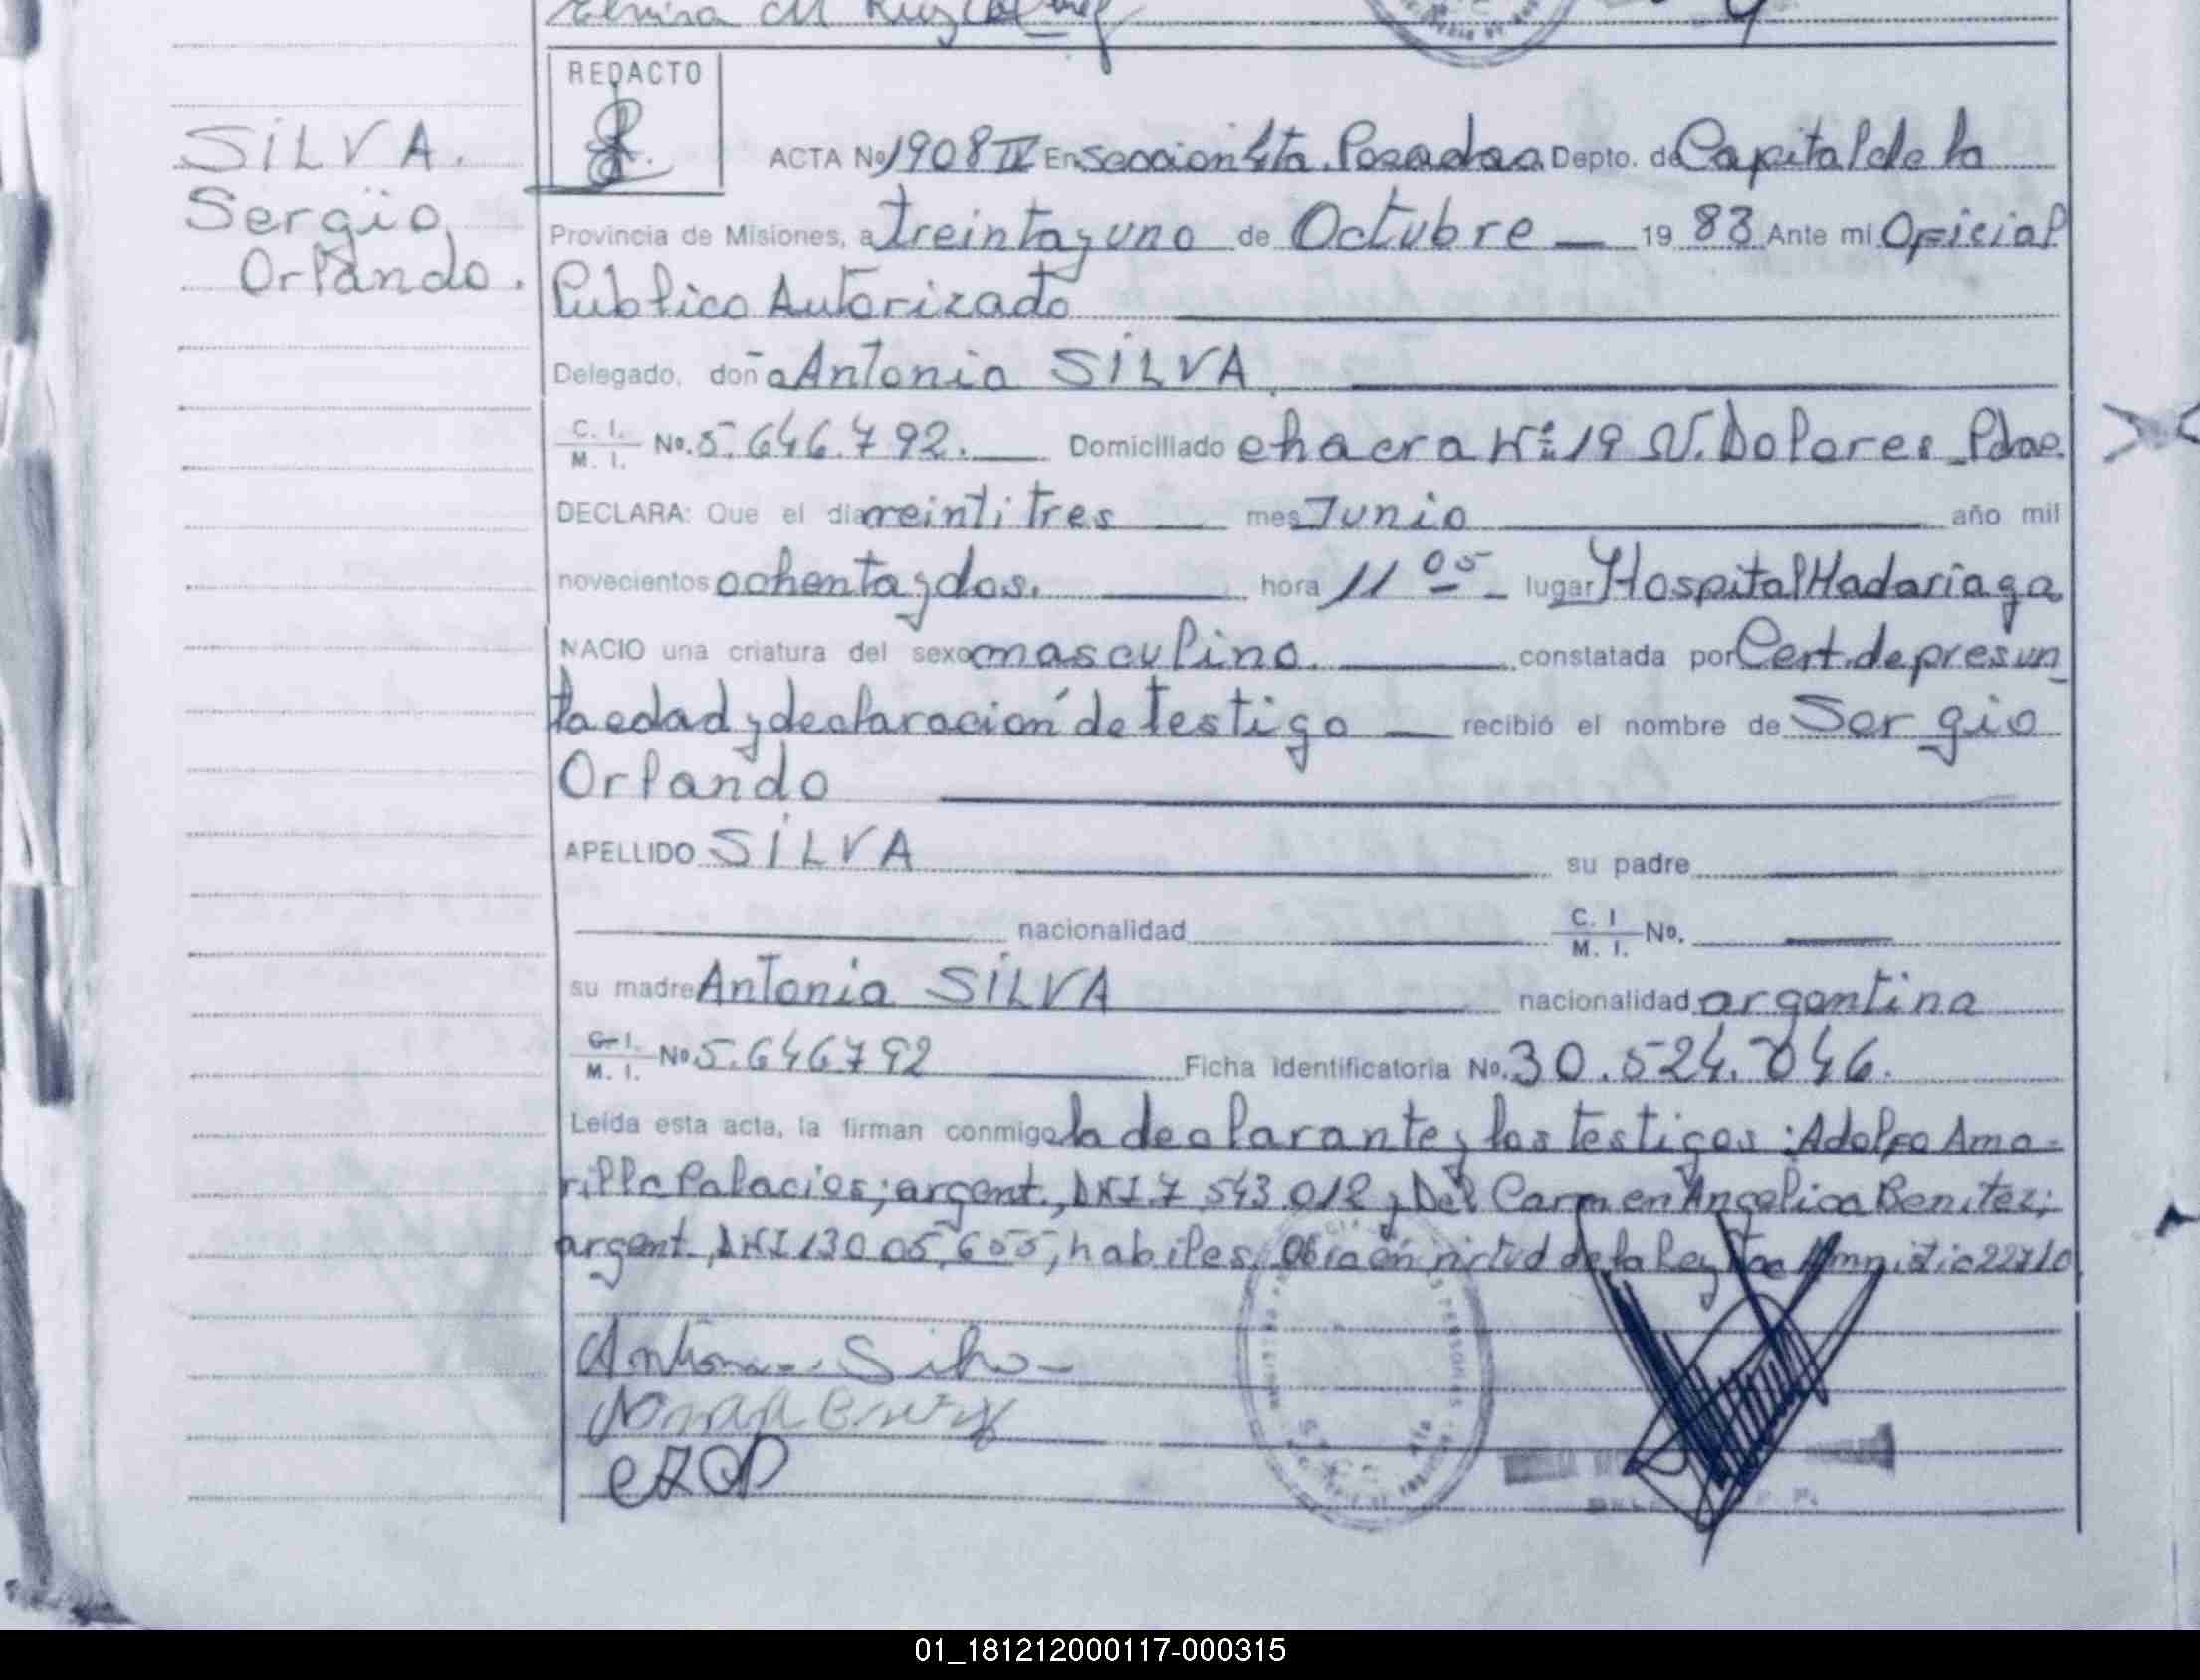 REDACTO
SILVA.
Sergio
Orlando.
ACTA No 1908 IV En Seccion 4ta. Posadas Depto. de Capital de la
Provincia de Misiones, a treinta y uno de Octubre — 19 83 Ante mi Oficial
Publico Autorizado
Delegado, doña Antonia SILVA
C. I. M. I. No. 5.646.792. Domiciliado chacra Nº 19 V. Dolores Pdas.
DECLARA: Que el dia veintitres mes Junio año mil
novecientos ochenta y dos. hora 11 05 lugar Hospital Madariaga
NACIO una criatura del sexo masculino. constatada por Cert. de presun
ta edad y declaración de testigo — recibió el nombre de Sergio
Orlando
APELLIDO SILVA su padre
nacionalidad C. I M. I. No.
su madre Antonia SILVA nacionalidad argentina
C. I. M. I. No 5.646792 Ficha identificatoria No. 30.524.046.
Leida esta acta, la firman conmigo la declarante y los testigos: Adolfo Ama-
rilla Palacios; argent., DNI 7.543.012 y Del Carmen Angelica Benitez;
argent., DNI 13005,655, habiles. Obra en virtud de la Ley de Amnistia 22710
Antonia Silva
01_181212000117-000315